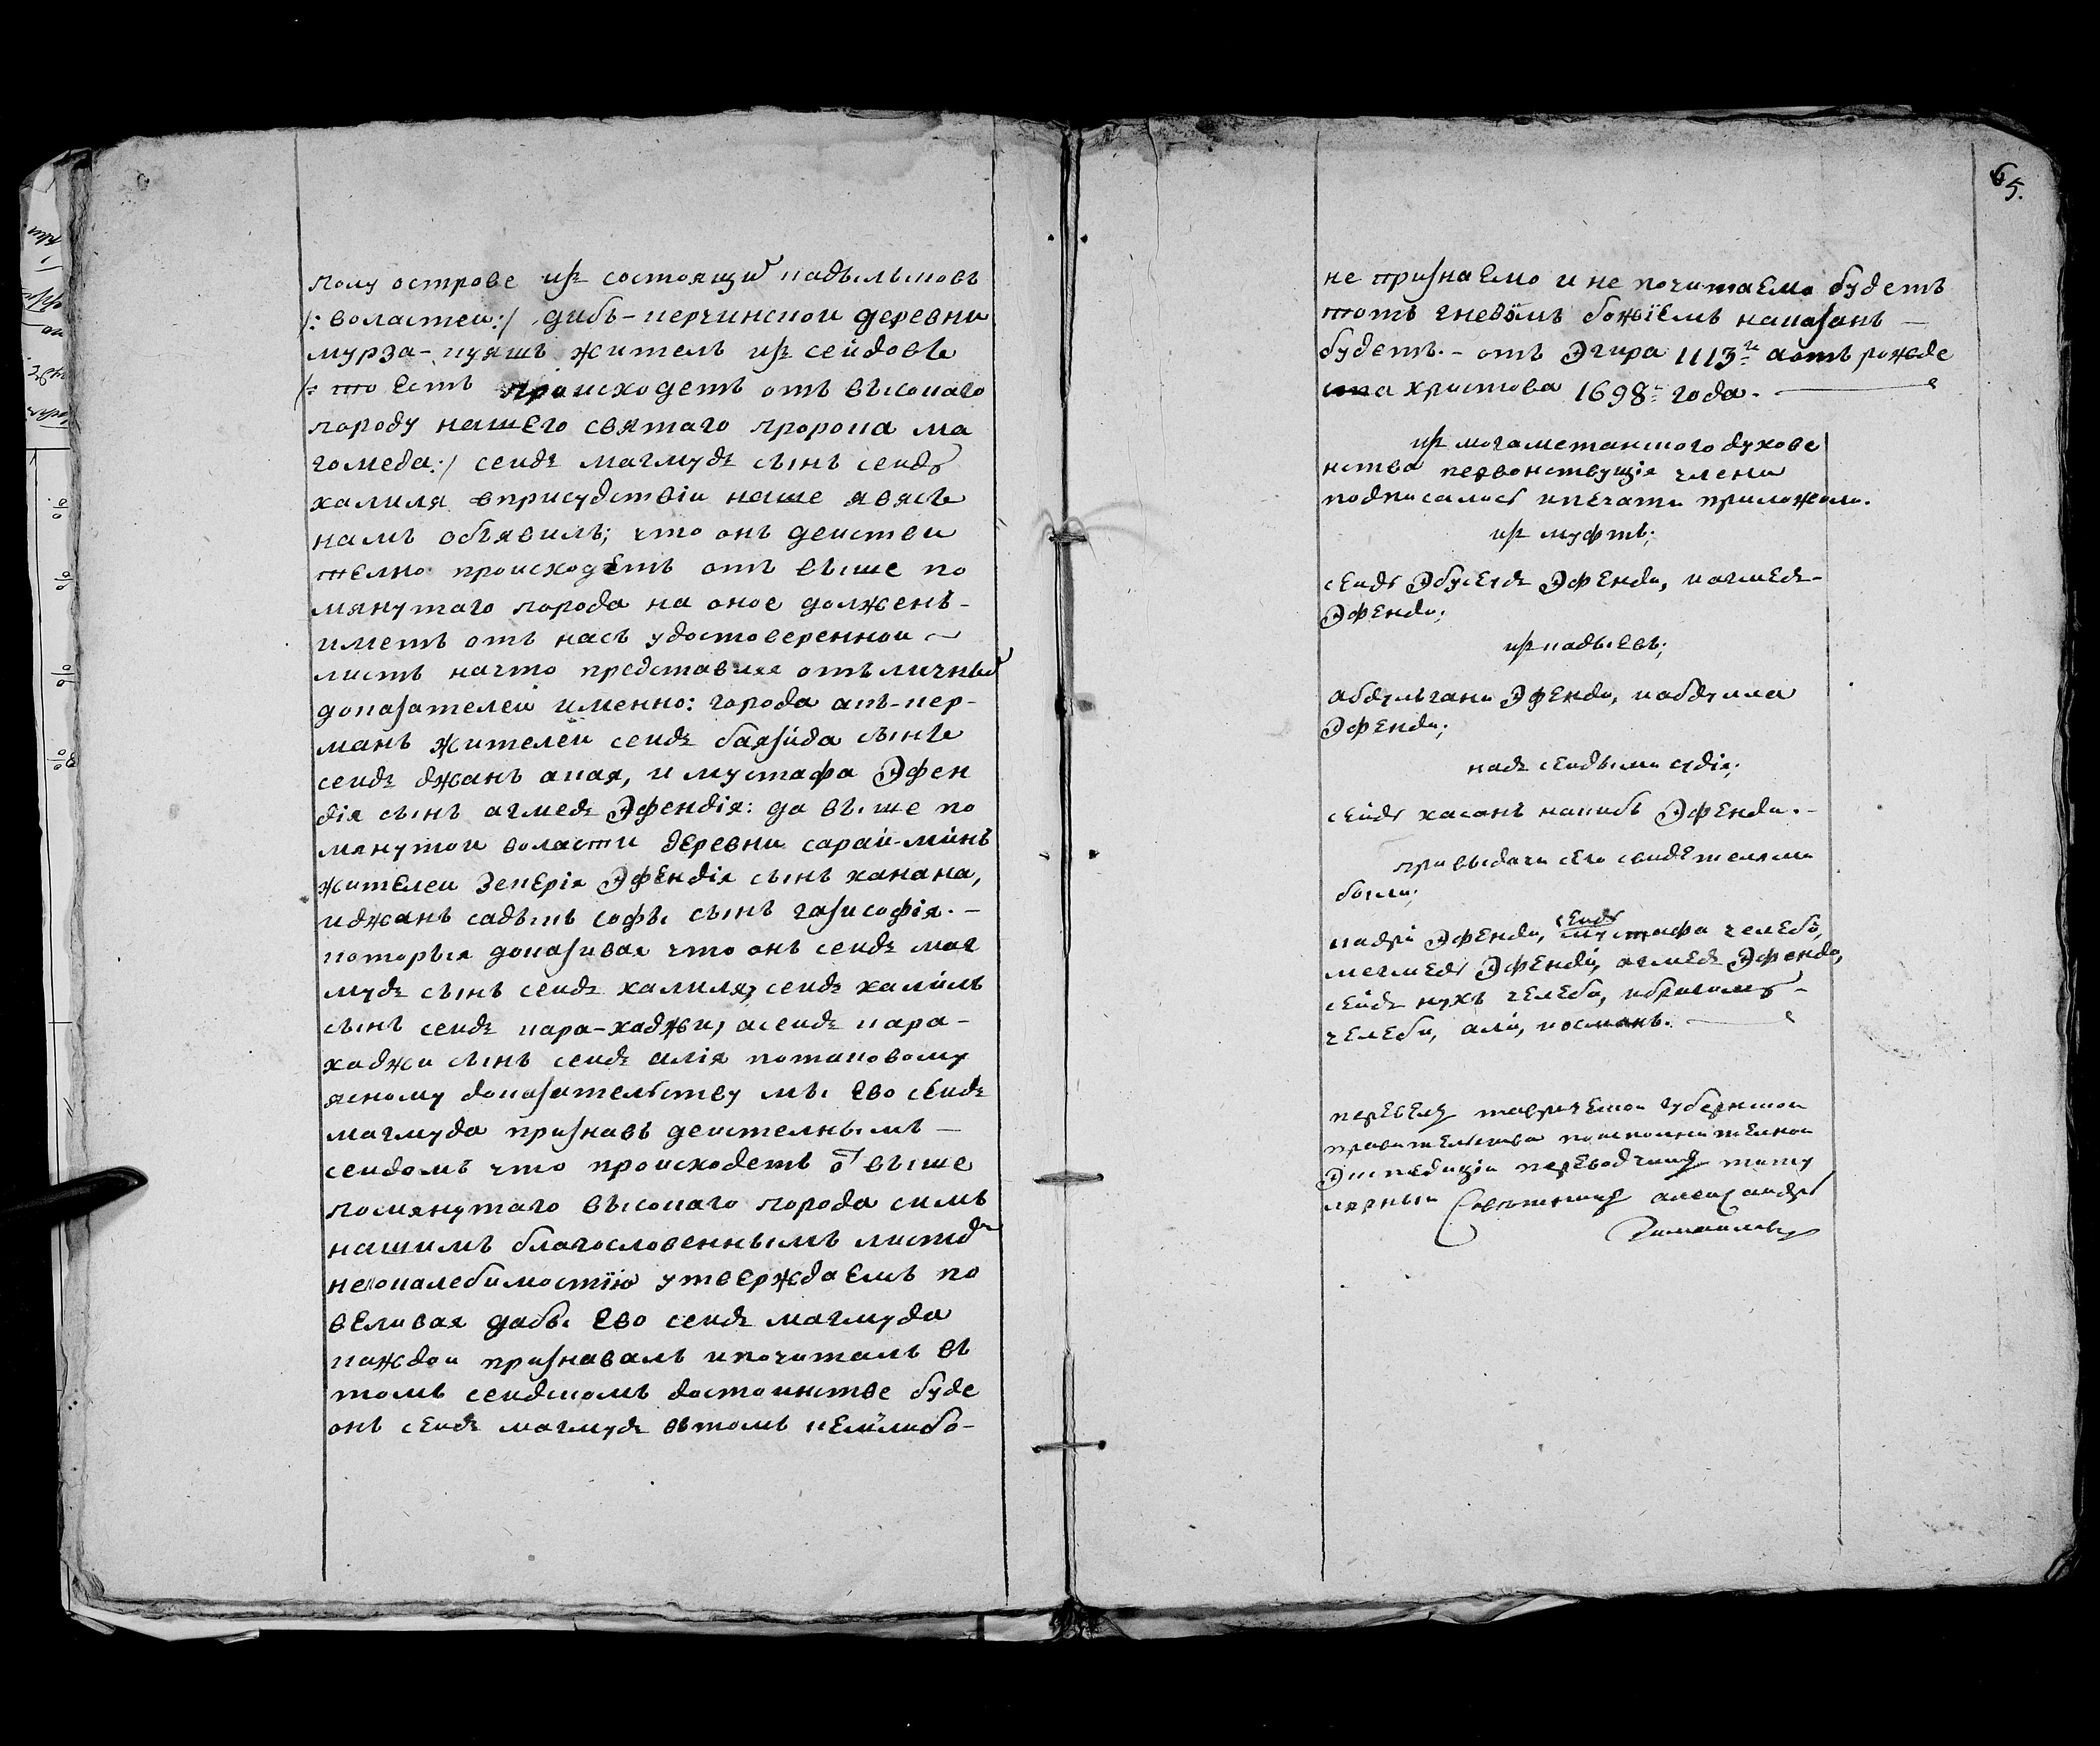 полу острове изъ состоящих кадылыковъ
/: воластеи :/ дибъ-керчинскои деревни
мурза-куяшъ жителъ изъ сеидовъ
/: то естъ происходетъ отъ высокаго
породу нашего святаго пророка ма
гомеда :/ сеидъ магмудъ сынъ сеидъ
халиля вприсудствіи наше явясъ
намъ объявилъ; что онъ деистви
телно происходетъ отъ выше по
мянутаго порода на оное долженъ-
иметь отъ насъ удостоверенной —
листъ начто представляя отъличных
доказателей именно: города акъ-кер-
манъ жителей сеидъ баязида сынъ
сеидъ джанъ акая, и мустафа Эфен
дія сынъ агмедъ Эфендія: да выше по
мянутои воласти деревни сарай-минъ
жителеи Зекерія Эфендія сынъ канана,
иджанъ садыкъ софы сынъ газисофія. —
которыя доказивая что онъ сеидъ маг
мудъ сынъ сеидъ халиля, сеидъ халилъ
сынъ сеидъ кара-хаджи, асеидъ кара-
хаджи сынъ сеидъ алія потаковому
ясному доказателъству мы ево сеидъ
магмуда признавъ деистелнымъ —
сеидомъ что происходетъ от выше
помянутаго высокаго порода симъ
нашимъ благословеннымъ листом
непокалебимостію утверждаемъ по
веливая дабы ево сеидъ магмуда
каждои признавалъ ипочиталъ въ
томъ сеидскомъ достоинстве буде
онъ сеидъ магмудъ втомъ кемлибо-
65.
не признаемо и не почитаемо будетъ
тотъ гневомъ божіемъ наказанъ —
будетъ. - отъ Эгира 1113го аотъ рожде
ства христова 1698го года. —
изъ магаметанского духове
нства первонствущія члени
подписалисъ ипечати приложили.
изъ муфтъ;
сеидъ Эбусеидъ Эфенди, иагмедъ-
Эфенди;
изъ кадыевъ;
абдулъгани Эфенди, иабдулла
Эфенди;
надъ сеидыми судія;
сеидъ хасанъ накибъ Эфенди. -
при выдачи сего свидетелями
были;
кадри Эфенди, сеидъ мустафа челеби,
мегмедъ Эфенди, агмедъ Эфенди,
сеидъ нухъ челеби, ибрагимъ -
челеби, али, иосманъ. —
перевелъ таврическои губернскои
правителъства поисполнителнои
Экспедиціи переводчикъ титу
лярный Советникъ александръ